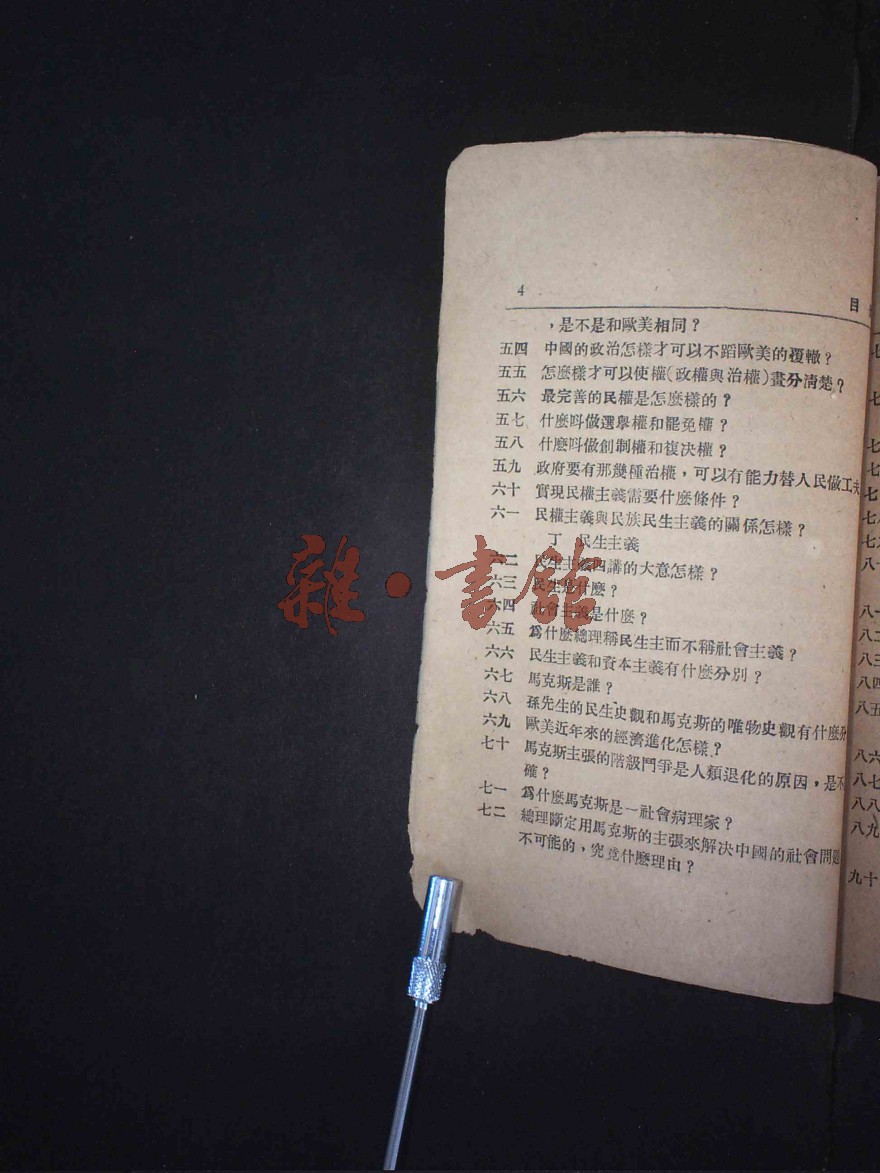 4
目
，是不是和歐美相同？
五四 中國的政治怎樣才可以不蹈歐美的覆轍？
五五 怎麼樣才可以使權（政權與治權）畫分淸楚？
五六 最完善的民權是怎麼樣的？
五七 什麼呌做選舉權和罷免權？
五八 什麼呌做創制權和複决權？
五九 政府要有那幾種治權，可以有能力替人民做工夫
六十 實現民權主義需要什麼條件？
六一 民權主義與民族民生主義的關係怎樣？
丁 民生主義
六二 民生主義四講的大意怎樣？
六三 民生是什麼？
六四 社會主義是什麼？
六五 爲什麼總理稱民生主而不稱社會主義？
六六 民生主義和資本主義有什麼分別？
六七 馬克斯是誰？
六八 孫先生的民生史觀和馬克斯的唯物史觀有什麼分
六九 歐美近年來的經濟進化怎樣？
七十 馬克斯主張的階級鬥爭是人類退化的原因，是不
確？
七一 爲什麼馬克斯是一社會病理家？
七二 總理斷定用馬克斯的主張來解决中國的社會問題
不可能的，究竟什麼理由？
八一
八二
八三
八四
八五
八六
八七
八八
八九
九十
雜·書館